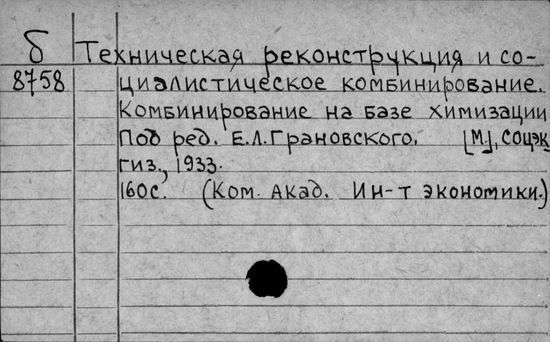 б Техническая реконструкция и со-
8758 циалистическое комбинирование.
Комбинирование на базе химизации
Под ред. Е.Л.Грановского. [М.], соцэк
гиз., 1933.
160с. (Ком. Акад. Ин-т экономики.)